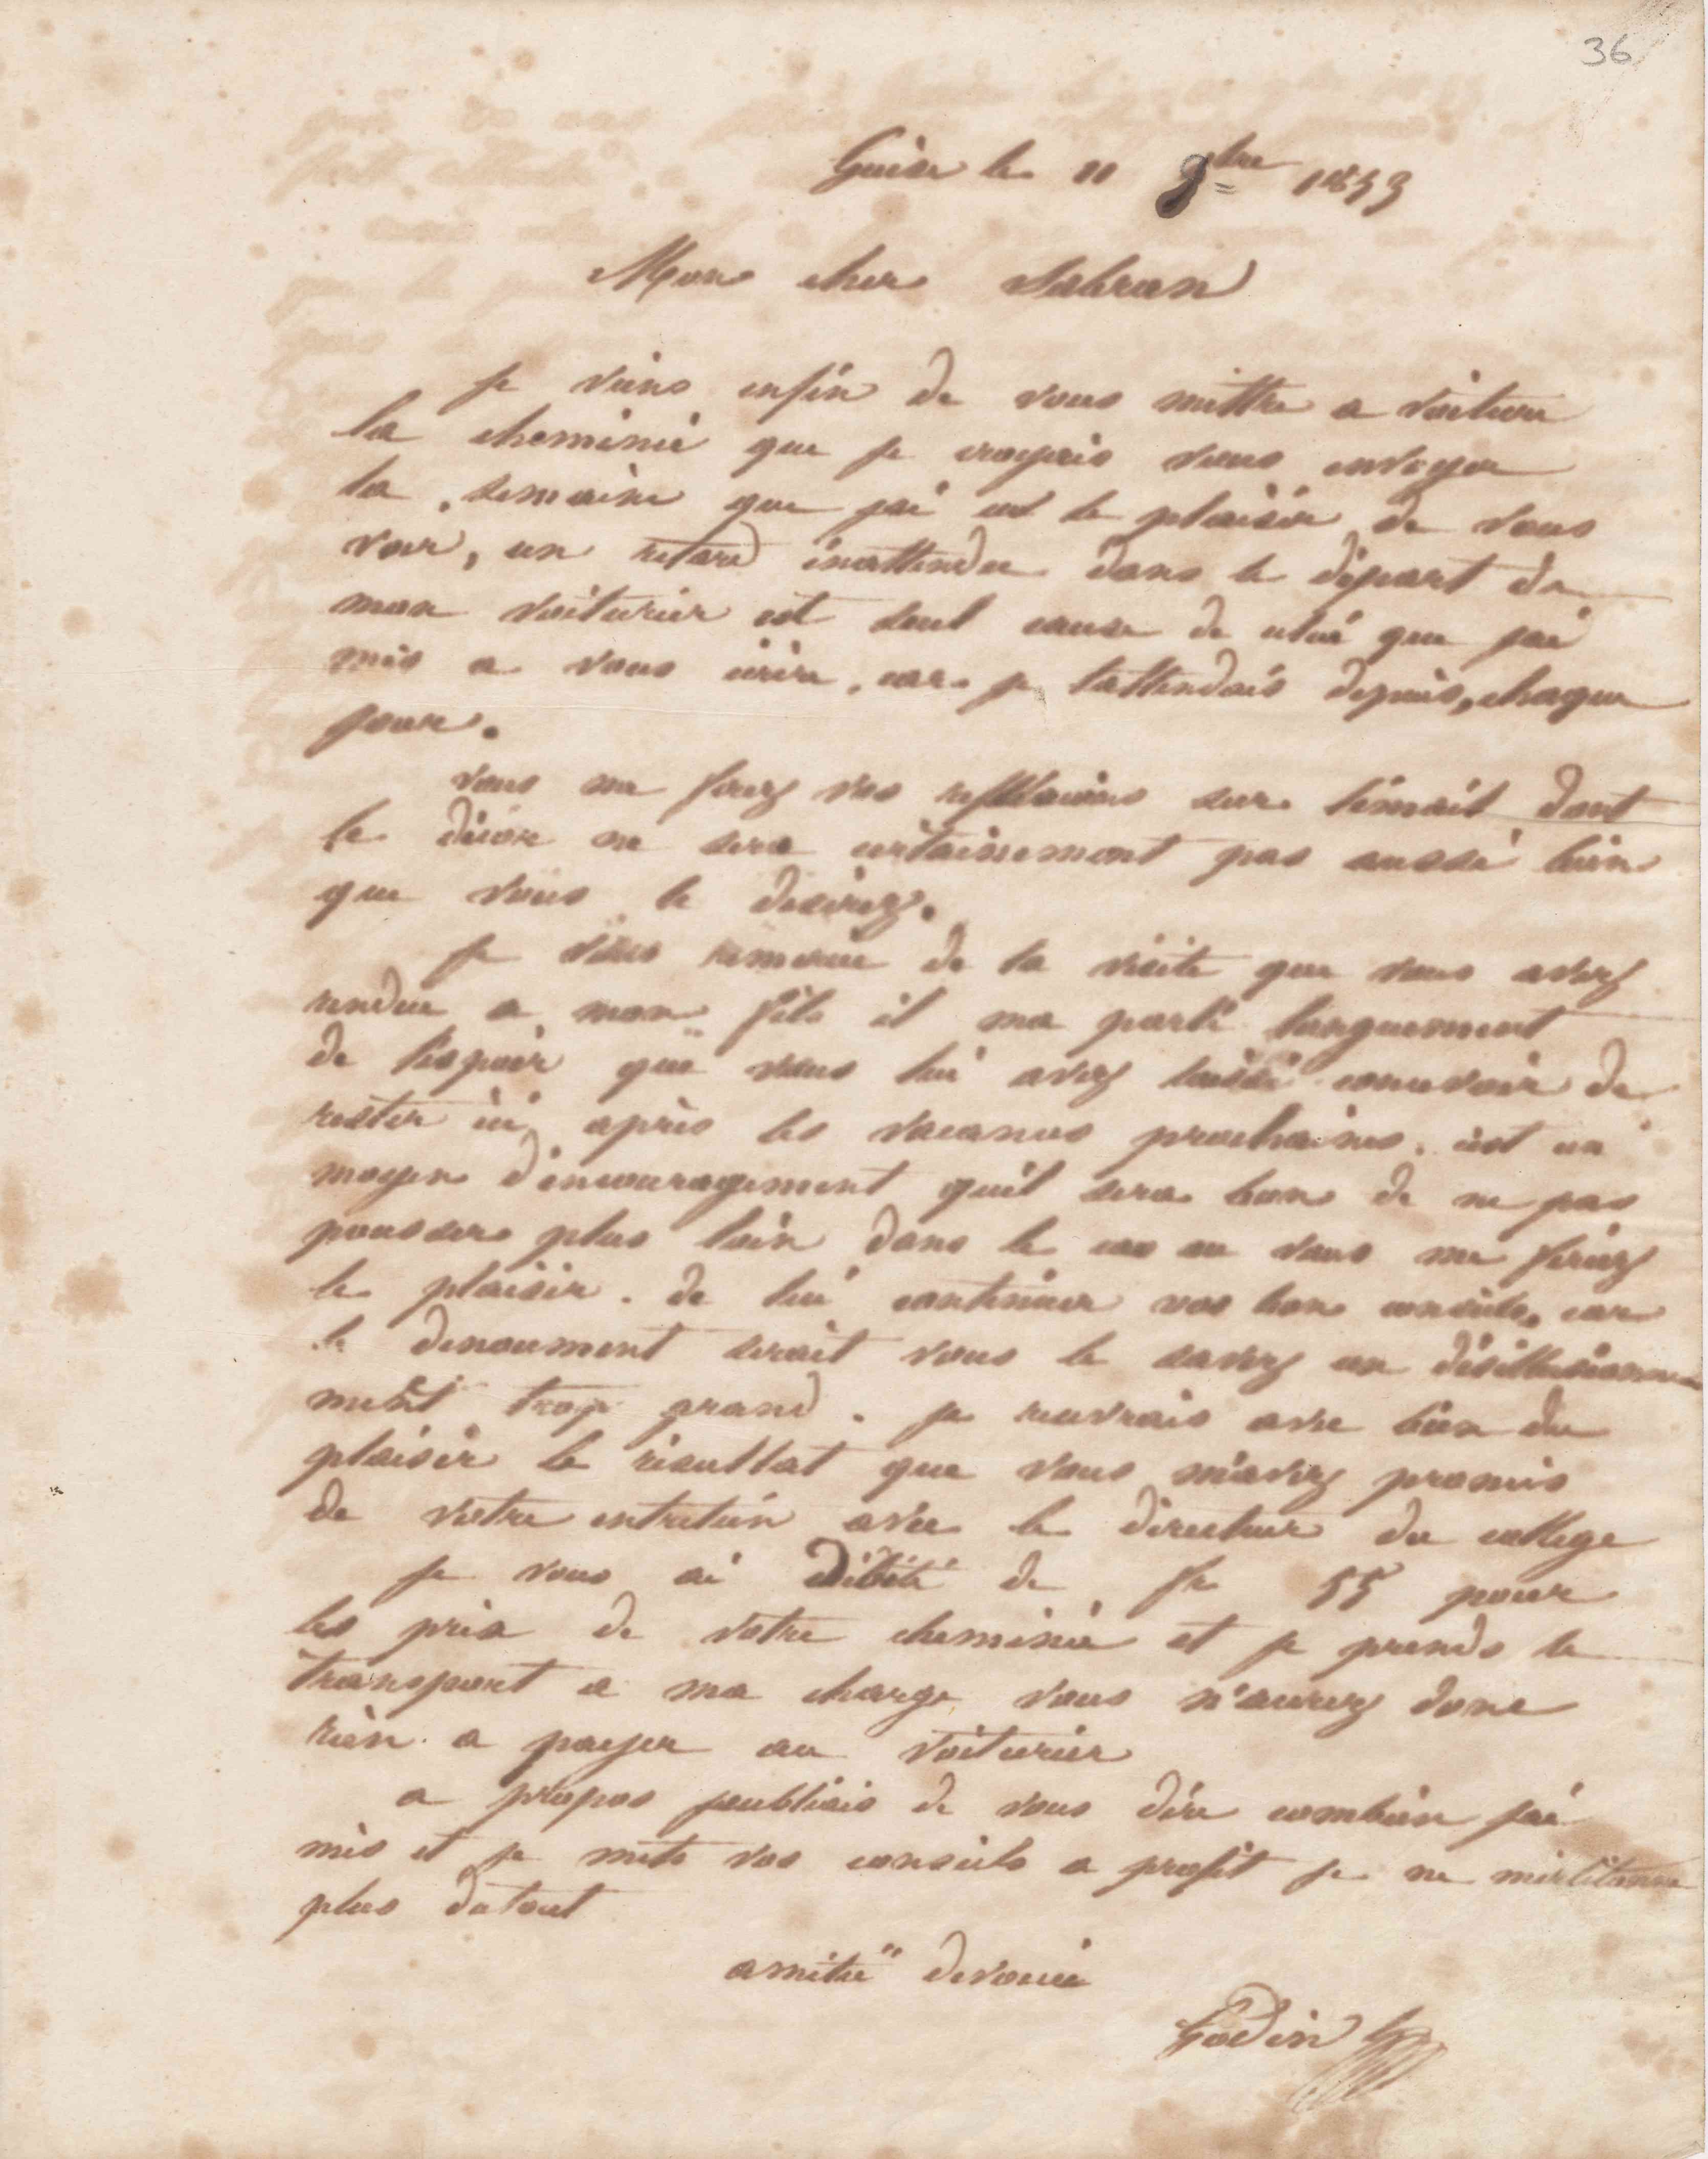 36
Guise le 11 8bre 1853
Mon cher Sabran
je viens enfin de vous mettre a voiture
la cheminée que je croyais vous envoyer
la semaine que jai eut le plaisir de vous
voir, un retard inattendu dans le départ de
mon voiturier est seul cause de celui que jai
mis a vous écrire, car je lattendais depuis, chaque
jour.
vous me ferez vos reflexions sur lémail dont
le décor ne sera certainement pas aussi bien
que vous le desirez.
je vous remercie de la visite que vous avez
rendue a mon fils il ma parlé longuement
de lespoir que vous lui avez laissé concevoir de
rester ici après les vacances prochaines. cest un
moyen d'encouragement quil sera bon de ne pas
pousser plus loin dans le cas ou vous me feriez
le plaisir de lui continuer vos bons conseils, car
le denoument serait vous le savez un désillusionne
ment trop grand. je recevrais avec bien du
plaisir le résultat que vous m'avez promis
de votre entretien avec le directeur du collège
je vous ai débité de fr 55 pour
les prix de votre cheminée et je prends le
transport a ma charge vous n'aurez donc
rien a payer au voiturier
a propos joubliais de vous dire combien jai
mis et je mets vos conseils a profit je ne
plus dutout
amitié devouée
Godin